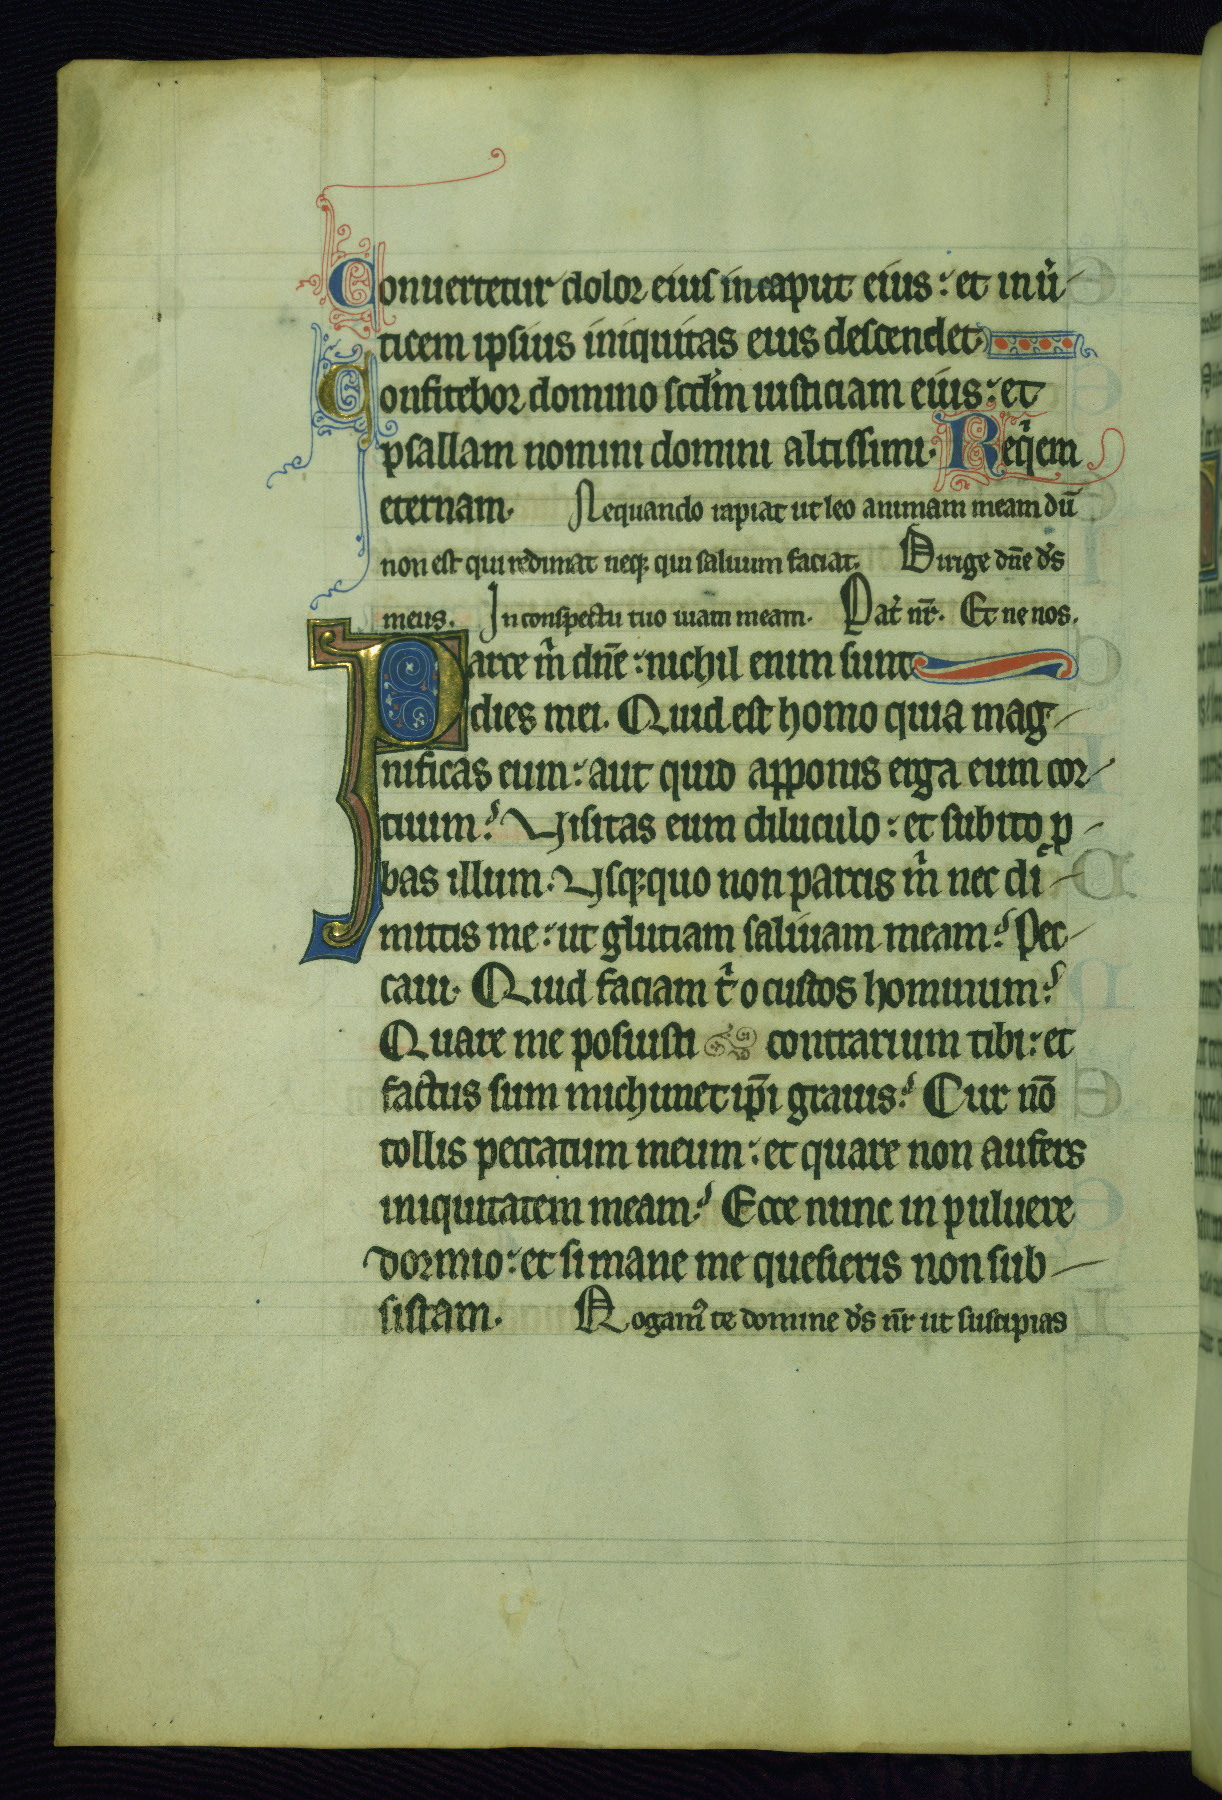 Conuertetur dolor eius in caput eius: et in u̾
ticem ipsius iniquitas eius descendet
Confitebor domino scd̾m iusticiam eius: et
psallam nomini domini altissimi. Req̾em
eternam. Nequando rapiat ut leo animam meam dū
non est qui redimat neqꝫ qui saluum faciat. Dirige dn̄e ds̄
meus. In conspectu tuo uiam meam. Pat̾ nr̄. Et ne nos.
Parce m̄ dn̄e: nichil enim sunt
dies mei. Quid est homo quia mag
nificas eum: aut quid apponis erga eum cor
tuum? Uisitas eum diluculo: et subito ꝓ
bas illum. Usqꝫquo non parcis m̄ nec di
mittis me: ut glutiam saliuam meam? Pec
caui. Quid faciam t̄ o custos hominum?
Quare me posuisti contrarium tibi: et
factus sum michimet ip̄i grauis? Cur nō
tollis peccatum meum: et quare non aufers
iniquitatem meam? Ecce nunc in puluere
dormio: et si mane me quesieris non sub
sistam. Rogamꝰ te domine ds̄ nr̄ ut suscipias